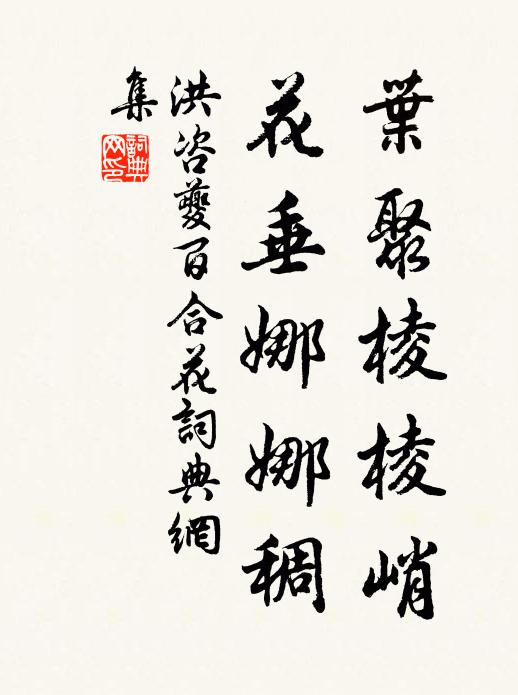 葉聚棱棱峭
花垂娜娜稠
洪咨夔百合花詞典網
集
詞典
网印